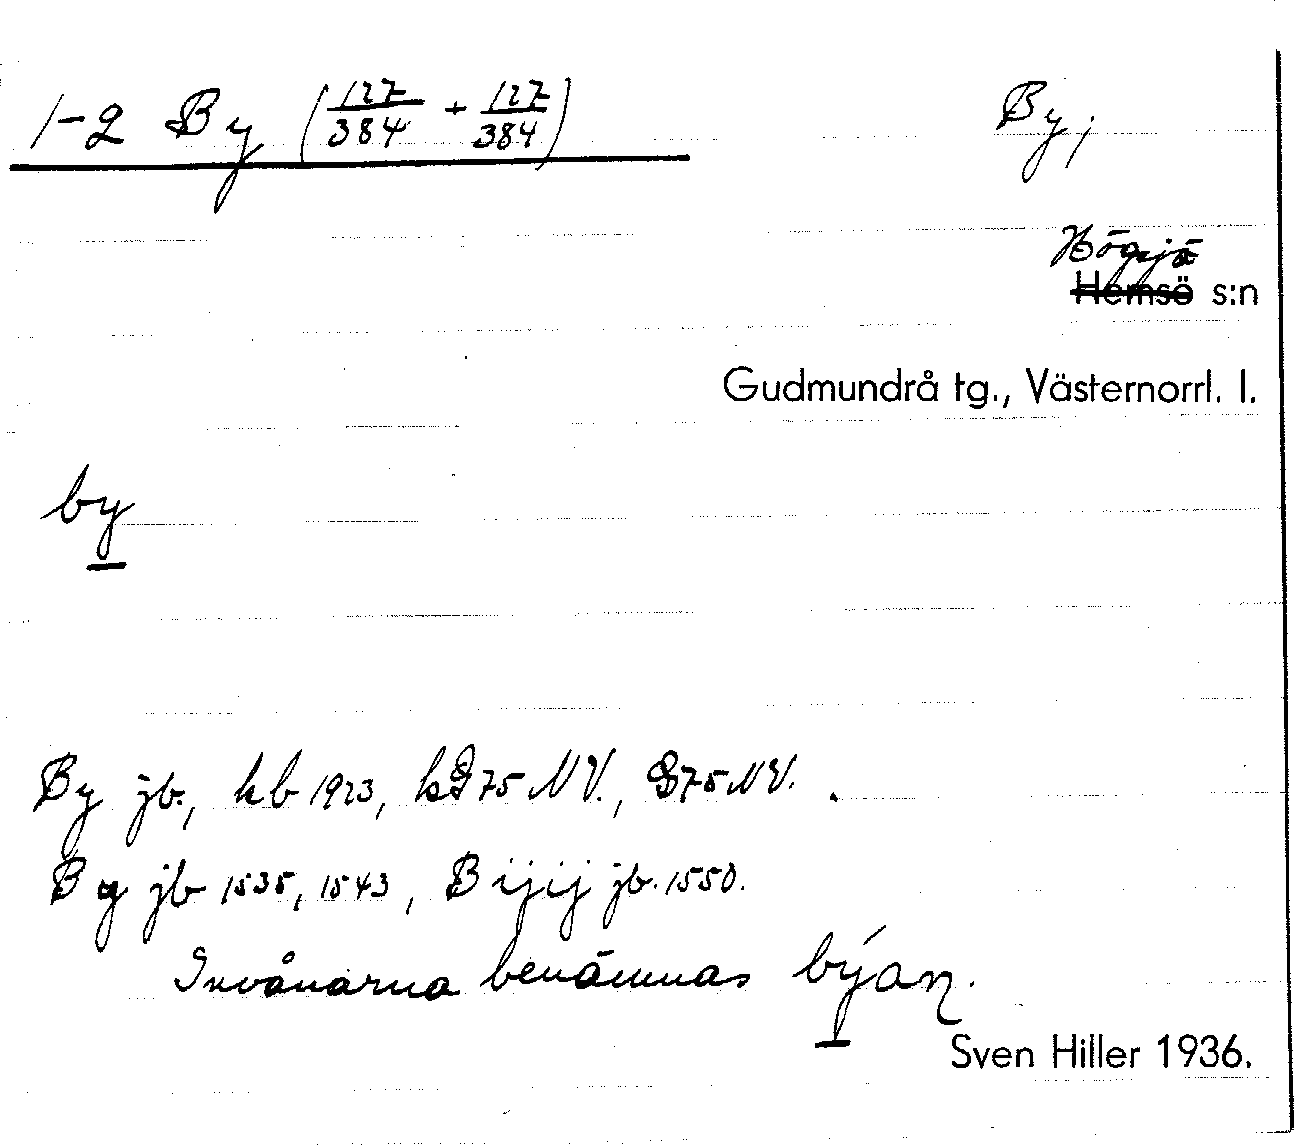 1-2 By (127/384 + 127/384)
By,
Högsjö
Hemsö s:n
Gudmundrå tg., Västernorrl. l.
by
By jb., kb 1923, kG 75 NV., G75 NV.
By jb 1535, 1543, Bijij jb. 1550.
Invånarna benämnas býaɳ.
Sven Hiller 1936.